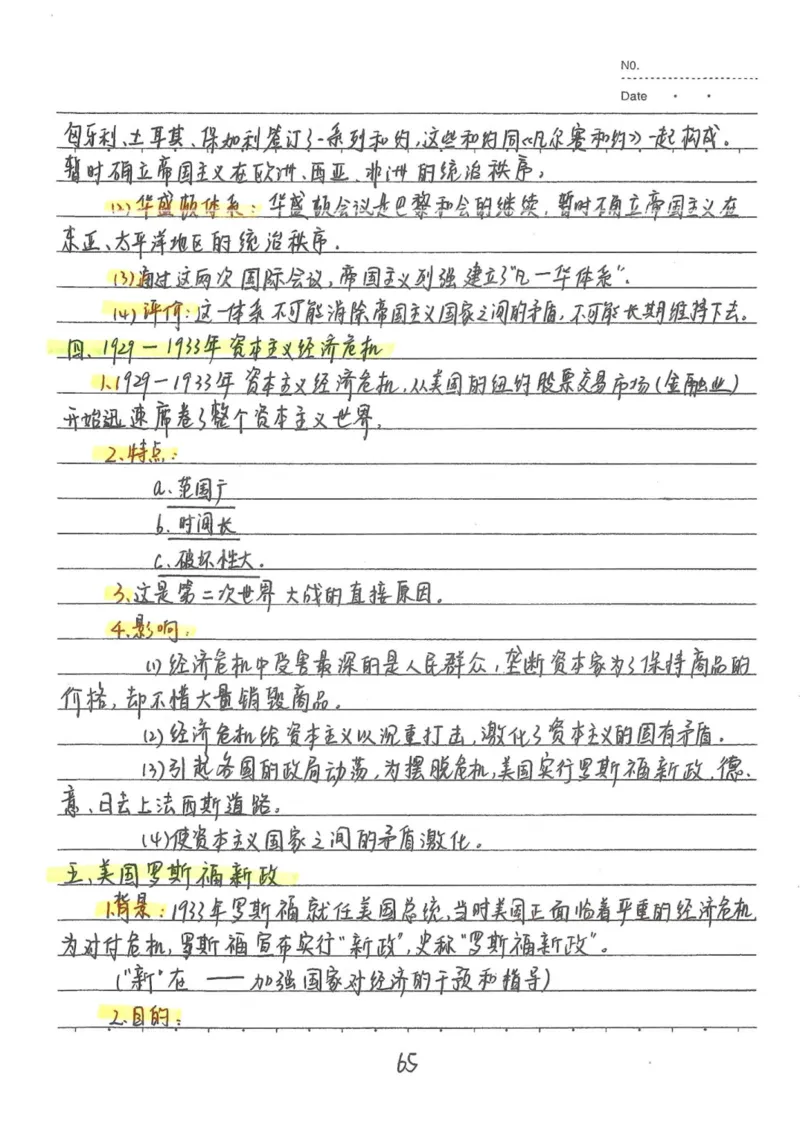 NO.
Date
匈牙利、土耳其、保加利签订了一系列和约,这些和约同《凡尔赛和约》一起构成。
暂时确立帝国主义在欧洲、西亚、非洲的统治秩序,
(2)华盛顿体系:华盛顿会议是巴黎和会的继续,暂时确立帝国主义在
东亚、太平洋地区的统治秩序.
(3)通过这两次国际会议,帝国主义列强建立了“凡一华体系”.
(4)评价:这一体系不可能消除帝国主义国家之间的矛盾,不可能长期维持下去。
四、1929—1933年资本主义经济危机
1.1929—1933年资本主义经济危机,从美国的纽约股票交易市场(金融业)
开始迅速席卷了整个资本主义世界,
2.特点:
a.范围广
b.时间长
c.破坏性大.
3.这是第二次世界大战的直接原因.
4.影响:
(1)经济危机中受害最深的是人民群众,垄断资本家为了保持商品的
价格,却不惜大量销毁商品。
(2)经济危机给资本主义以沉重打击,激化了资本主义的固有矛盾.
(3)引起各国的政局动荡,为摆脱危机,美国实行罗斯福新政.德、
意、日去上法西斯道路。
(4)使资本主义国家之间的矛盾激化。
五、美国罗斯福新政
1.背景:1933年罗斯福就任美国总统,当时美国正面临着严重的经济危机,
为对付危机,罗斯福宣布实行“新政”,史称“罗斯福新政”。
(“新”在——加强国家对经济的干预和指导)
2.目的:
65